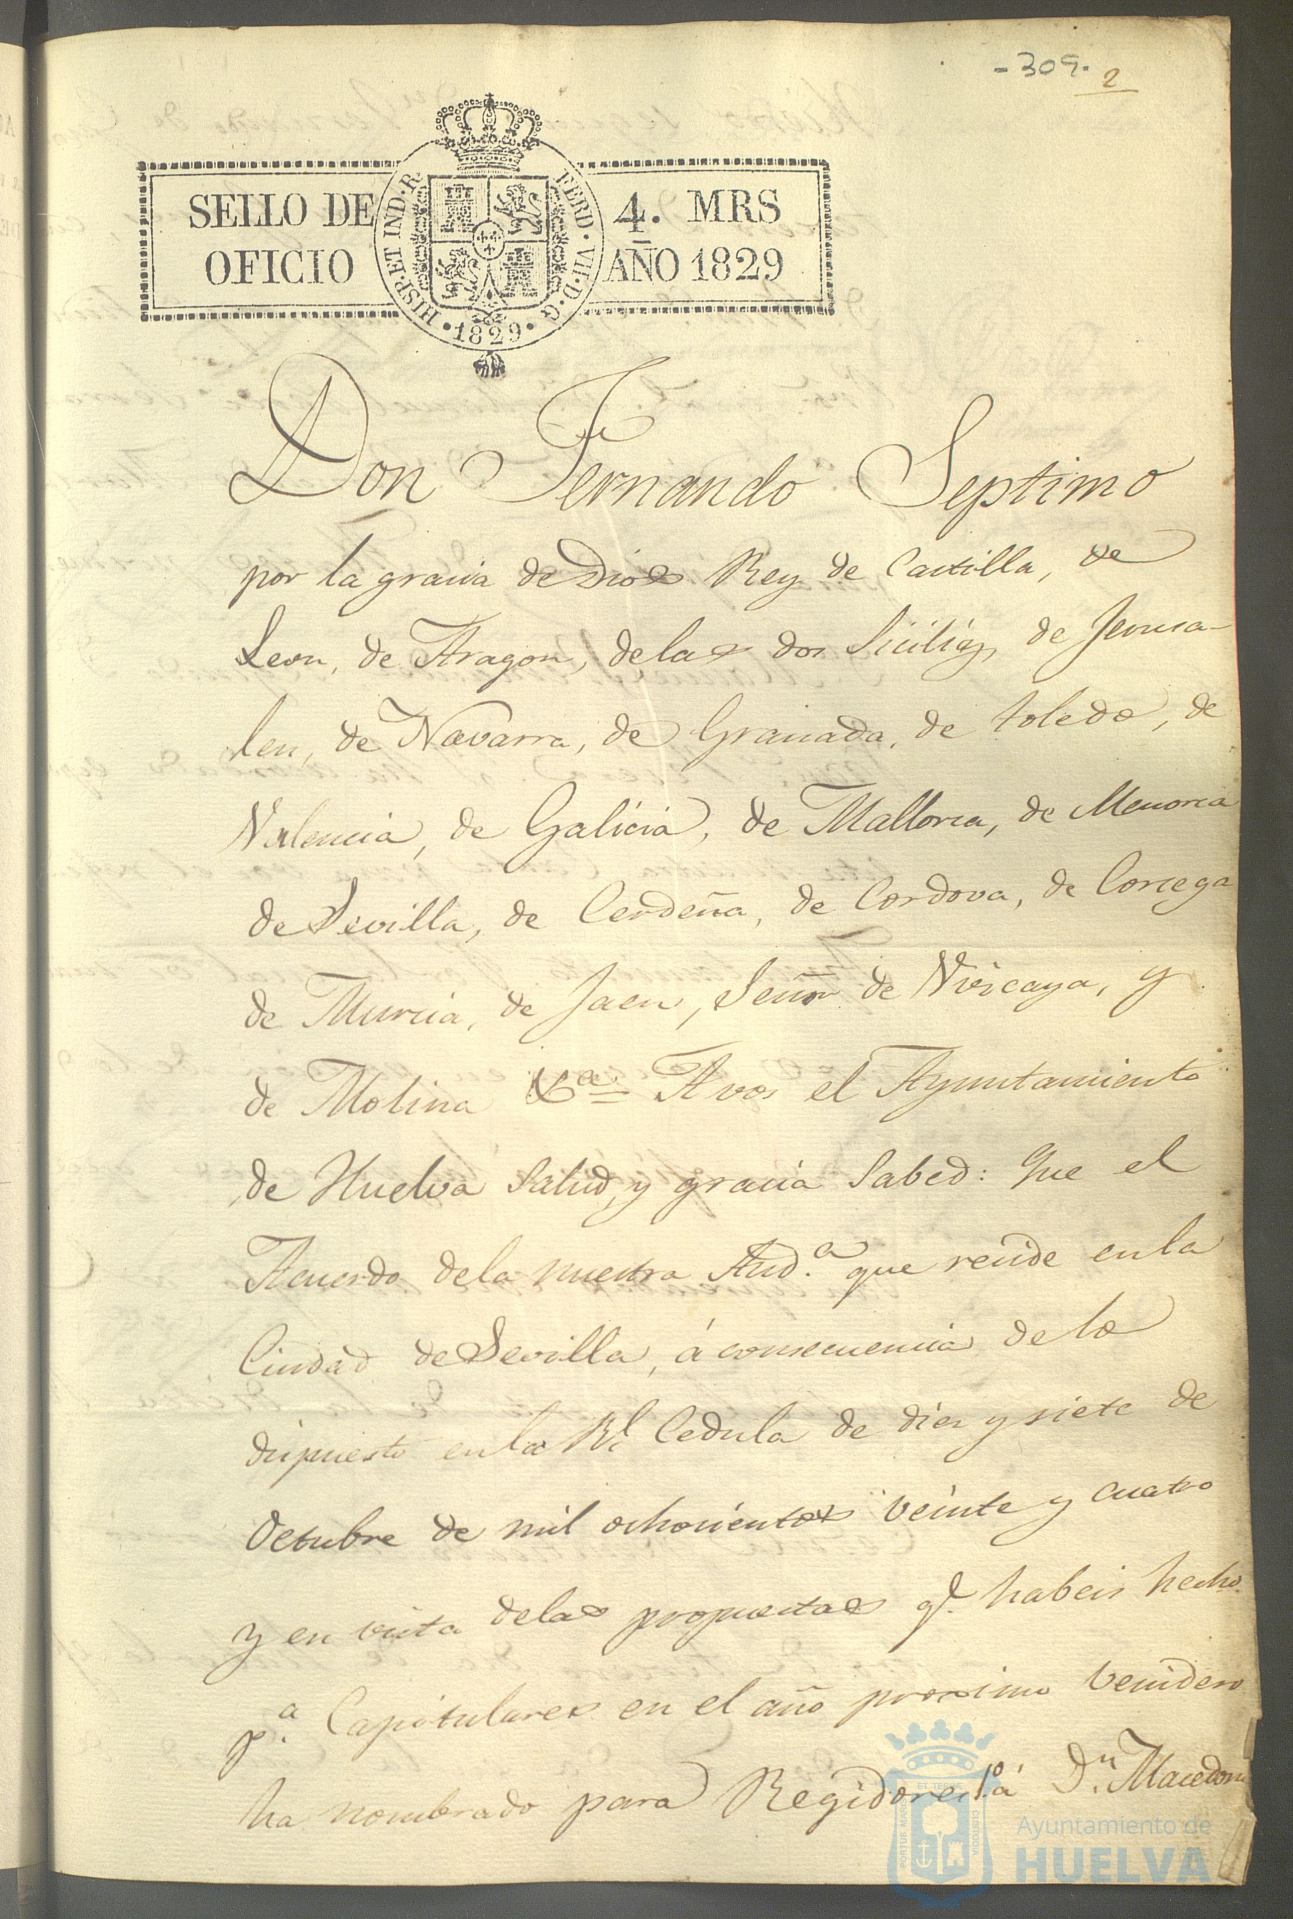 -309.
2
SELLO DE OFICIO
4. MRS
AÑO 1829
HISP·ET IND·R· FERD·VII·D·G
·1829·
Don Fernando Septimo
por la gracia de Dios Rey de Castilla, de
Leon, de Aragon, delas dos Sicilias, de Jerusa-
len, de Navarra, de Granada, de toledo, de
Valencia, de Galicia, de Mallorca, de Menorca
de Sevilla, de Cerdeña, de Cordova, de Corcega
de Murcia, de Jaen, Señor de Viscaya, y
de Molina &ª Avos el Ayuntamiento
de Huelva Salud, y gracia Sabed: Que el
Acuerdo dela nuestra Aud.ª que reside en la
Ciudad de Sevilla, á consecuencia de lo
dispuesto en la Rl Cedula de diez y siete de
Octubre de mil ochocientos veinte y cuatro
y en vista delas propuestas q.e habeis hecho
p.ª Capitulares en el año proximo venidero
ha nombrado para Regidores 1.º á D.n Macedoni
Ayuntamiento de
HUELVA